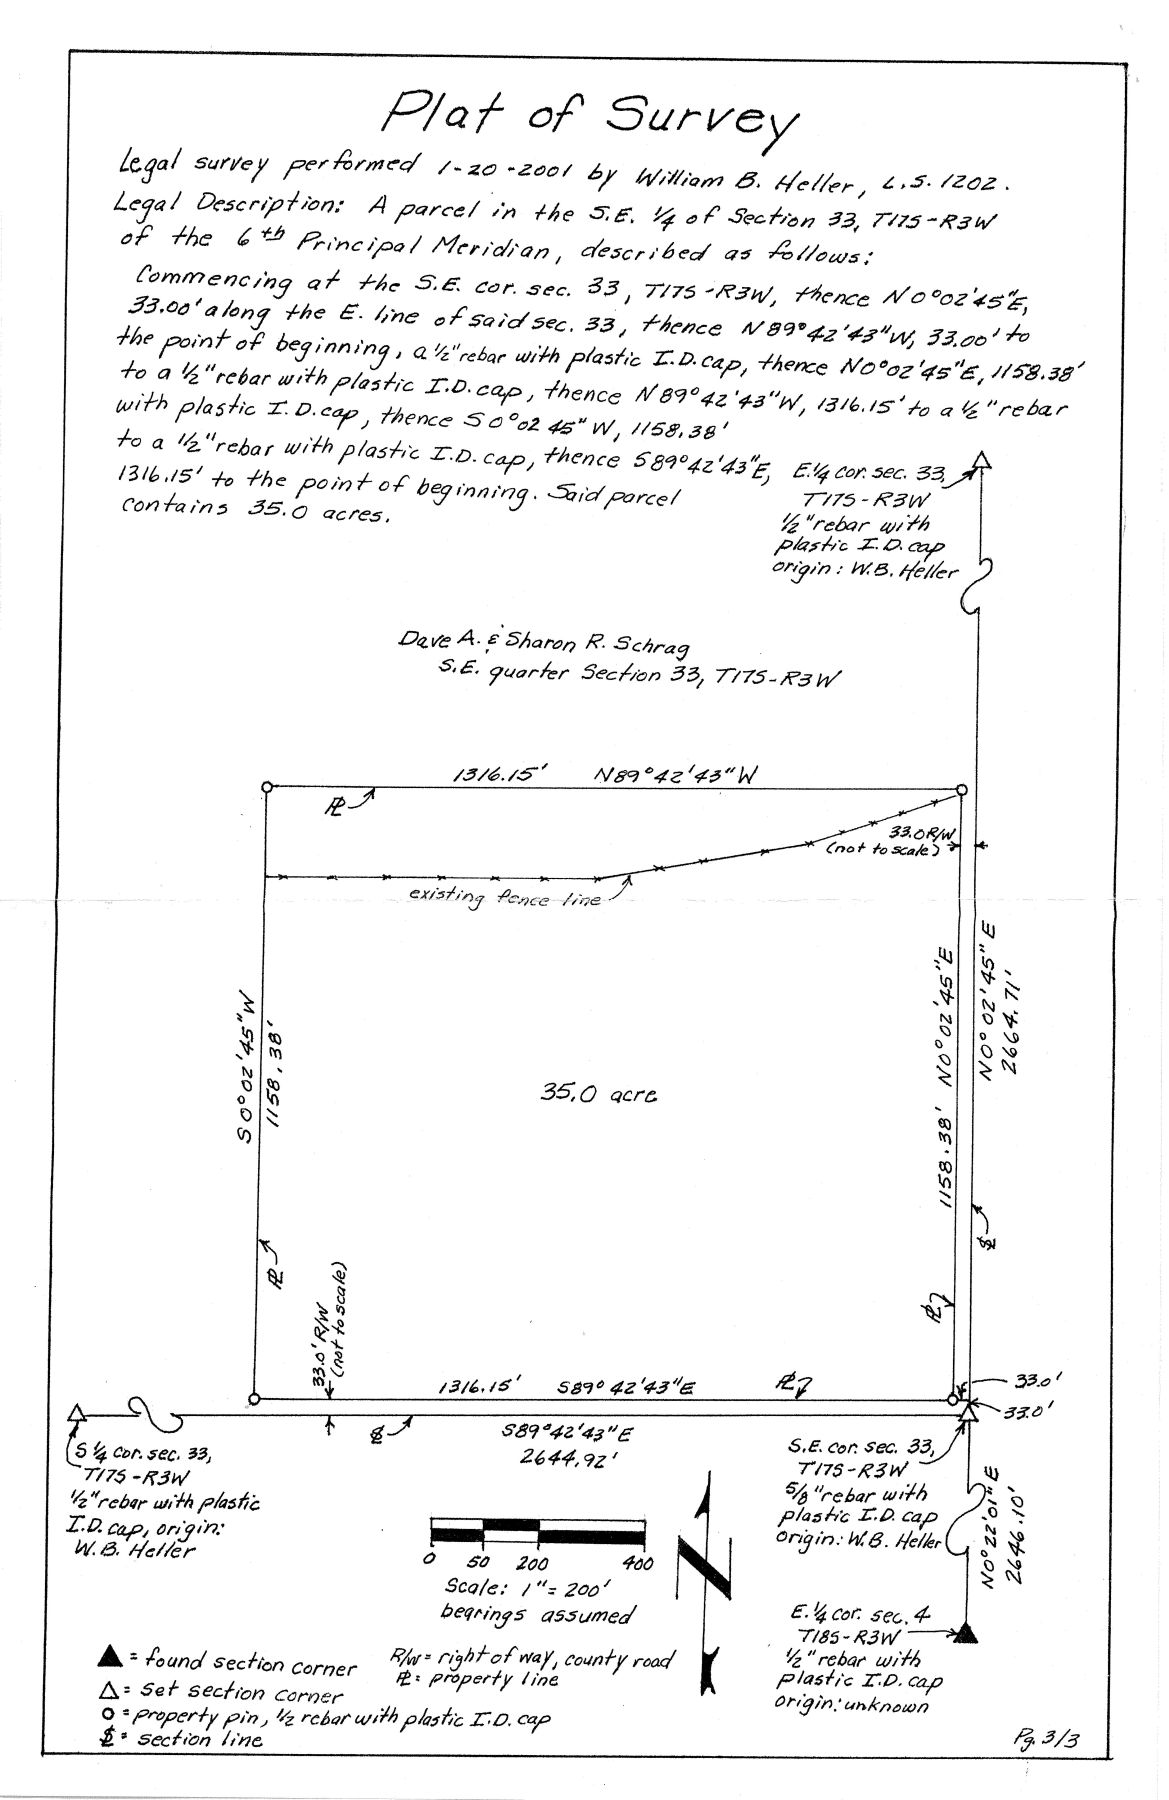 Plat of Survey
Legal survey performed 1-20-2001 by William B. Heller, L.S. 1202.
Legal Description: A parcel in the S.E. 1/4 of Section 33, T17S-R3W
of the 6th Principal Meridian, described as follows:
Commencing at the S.E. cor. sec. 33, T17S-R3W, thence N0°02'45"E,
33.00' along the E. line of said sec. 33, thence N89°42'43"W, 33.00' to
the point of beginning, a 1/2" rebar with plastic I.D. cap, thence N0°02'45"E, 1158.38'
to a 1/2" rebar with plastic I.D. cap, thence N89°42'43"W, 1316.15' to a 1/2" rebar
with plastic I.D. cap, thence S0°02 45"W, 1158.38'
to a 1/2" rebar with plastic I.D. cap, thence S89°42'43"E,
1316.15' to the point of beginning. Said parcel
contains 35.0 acres.
E. 1/4 cor. sec. 33,
T17S-R3W
1/2" rebar with
plastic I.D. cap
origin: W.B. Heller
Dave A. & Sharon R. Schrag
S.E. quarter Section 33, T17S-R3W
1316.15' N89°42'43"W
PL
33.0 R/W
(not to scale)
existing fence line
S0°02'45"W
1158.38'
35.0 acre
1158.38' N0°02'45"E
N0°02'45"E
2664.71'
PL
SL
PL
33.0' R/W
(not to scale)
1316.15' S89°42'43"E
PL
33.0'
33.0'
SL
S89°42'43"E
2644.92'
S 1/4 cor. sec. 33,
T17S-R3W
1/2" rebar with plastic
I.D. cap, origin:
W.B. Heller
S.E. cor. sec. 33,
T17S-R3W
5/8" rebar with
plastic I.D. cap
origin: W.B. Heller
N0°22'01"E
2646.10'
0 50 200 400
Scale: 1"=200'
bearings assumed
N
E. 1/4 cor. sec. 4
T18S-R3W
1/2" rebar with
plastic I.D. cap
origin: unknown
▲ = found section corner
△ = set section corner
O = property pin, 1/2 rebar with plastic I.D. cap
SL = section line
R/W = right of way, county road
PL = property line
Pg. 3/3